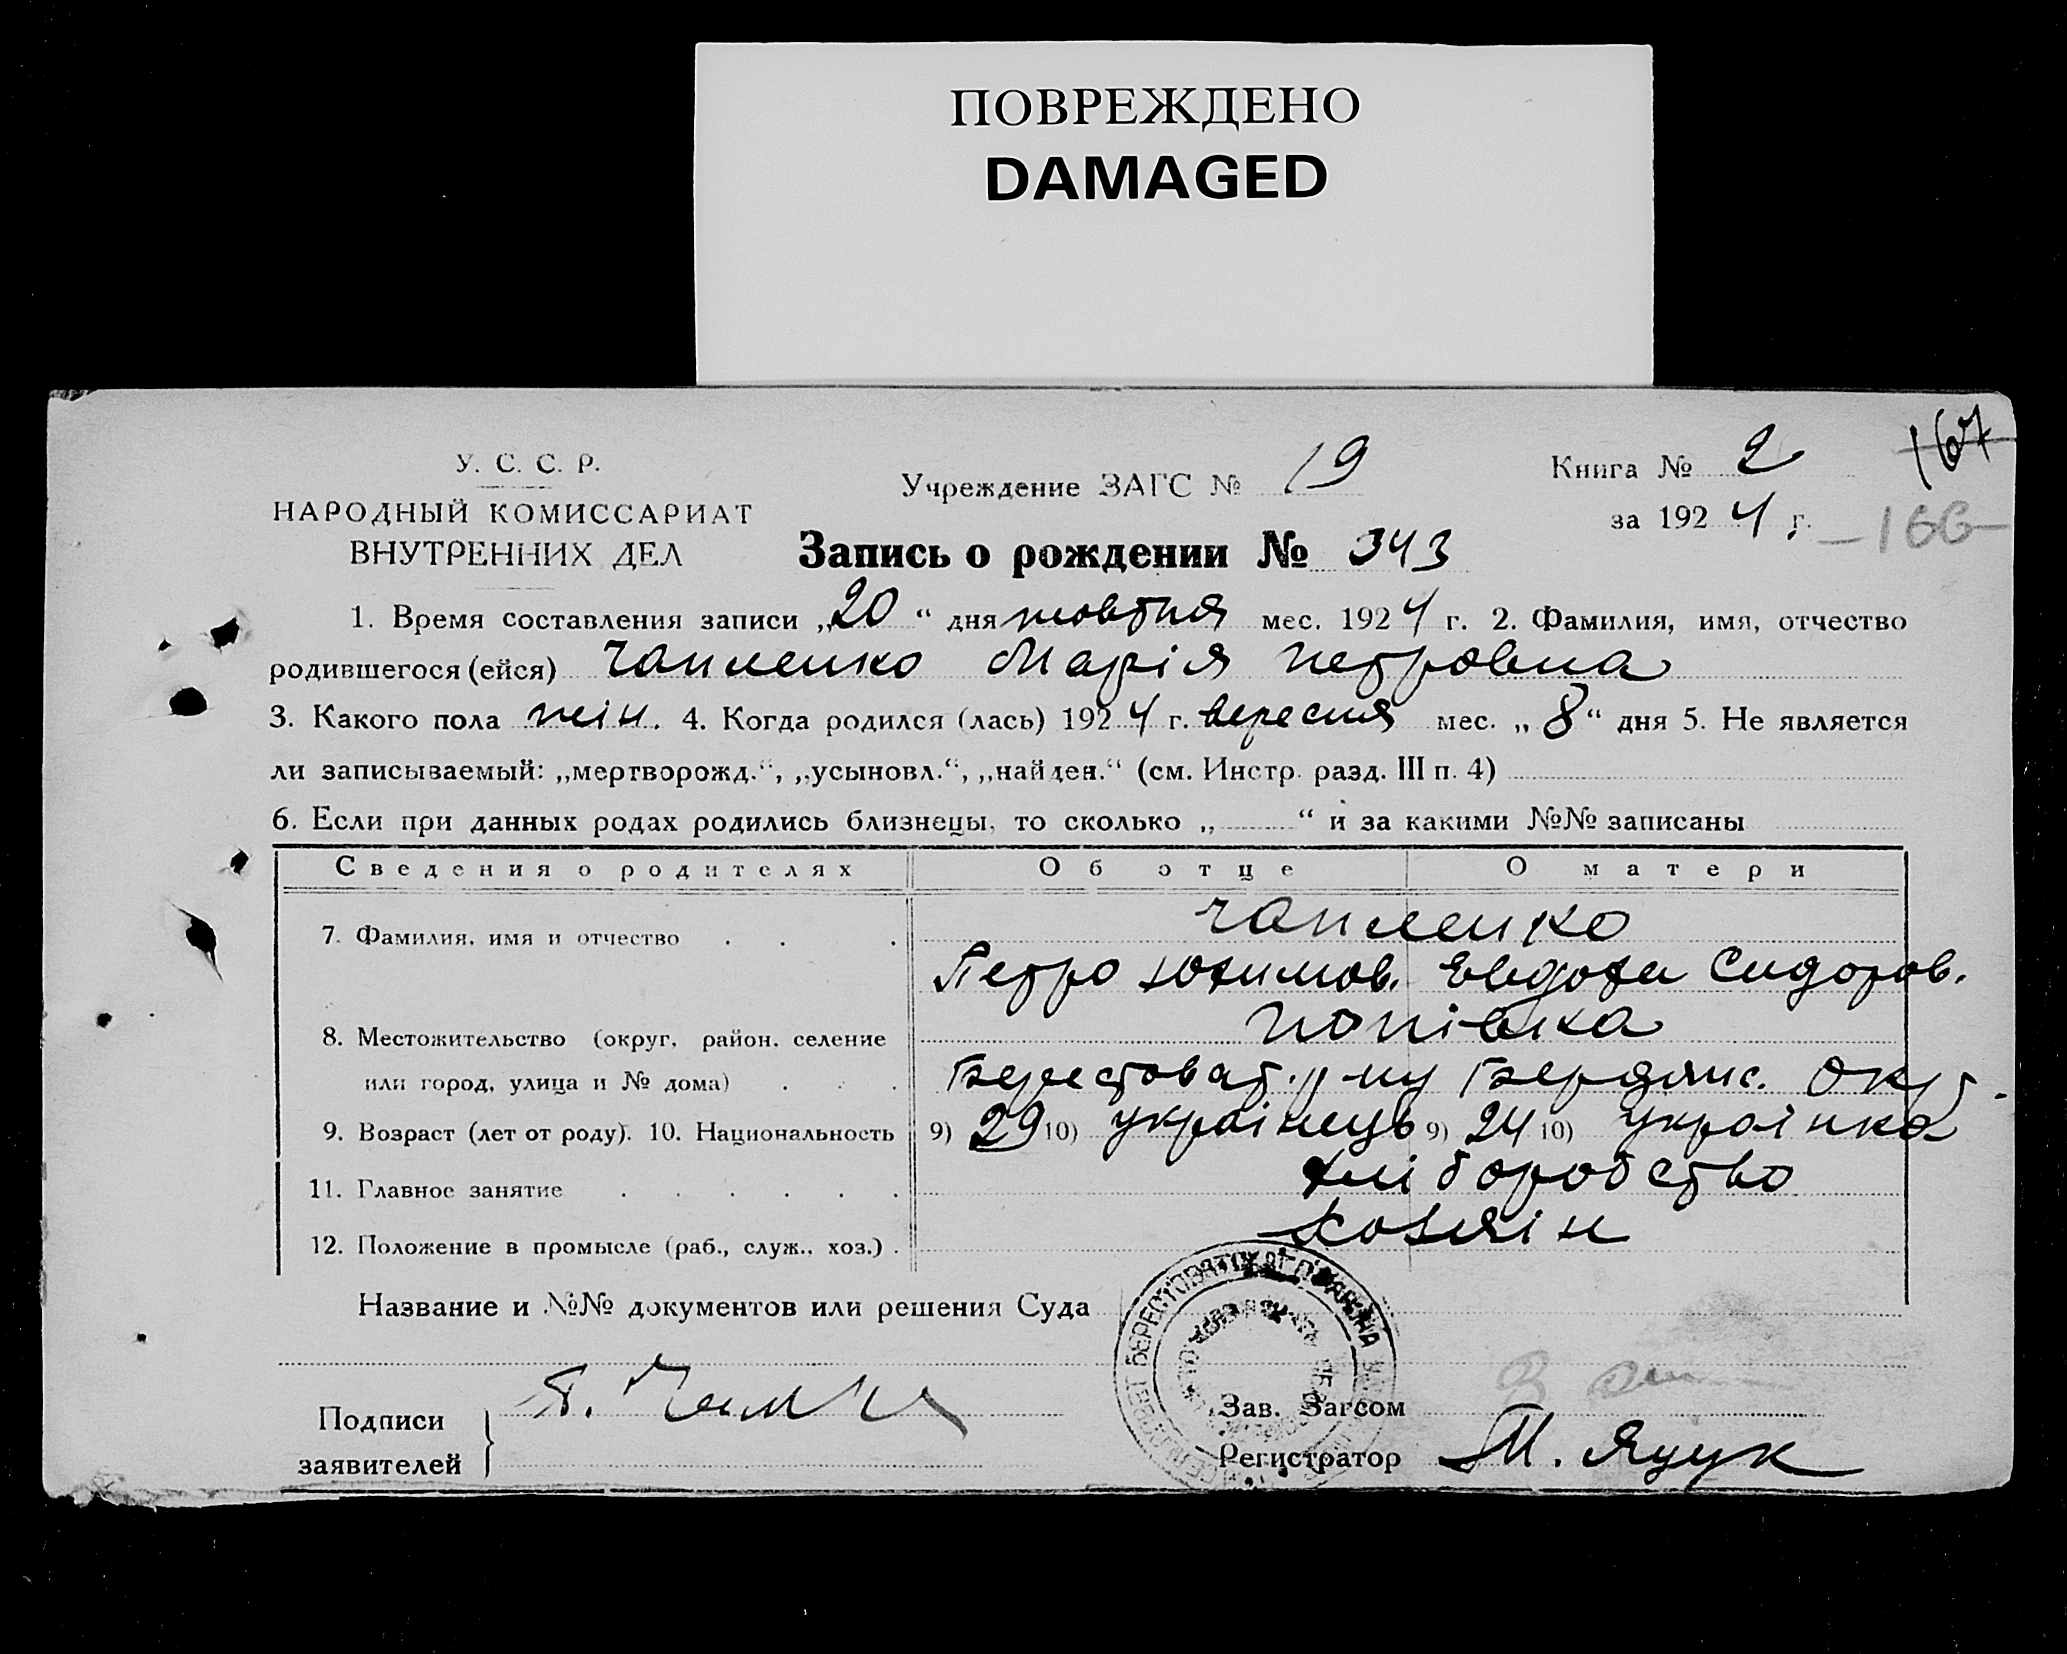 ПОВРЕЖДЕНО
DAMAGED
167
У. С. С. Р.
НАРОДНЫЙ КОМИССАРИАТ
ВНУТРЕННИХ ДЕЛ
Учреждение ЗАГС № 19
Книга № 2
за 1924 г.
-166-
Запись о рождении № 343
1. Время составления записи „20“ дня жовтня мес. 1924 г. 2. Фамилия, имя, отчество
родившегося (ейся) Чапленко Марія Петровна
3. Какого пола жін. 4. Когда родился (лась) 1924 г. вересня мес. „8“ дня 5. Не является
ли записываемый: „мертворожд.“, „усыновл.“, „найден.“ (см. Инстр. разд. III п. 4)
6. Если при данных родах родились близнецы, то сколько „ “ и за какими №№ записаны
Сведения о родителях Об отце О матери
7. Фамилия, имя и отчество Чапленко
Петро Юхимов. Евдоха Сидоров.
8. Местожительство (округ, район, селение Попівка
или город, улица и № дома) Берестоват. р-ну Бердянс. окр.
9. Возраст (лет от роду). 10. Национальность 9) 29 10) українець 9) 24 10) українка
11. Главное занятие хліборобство
12. Положение в промысле (раб., служ., хоз.) хозяін
Название и №№ документов или решения Суда
БЕРЕСТОВАТСЬКОГО РАЙОНА
Подписи
заявителей
П.
Зав. Загсом
Регистратор М. Яцук